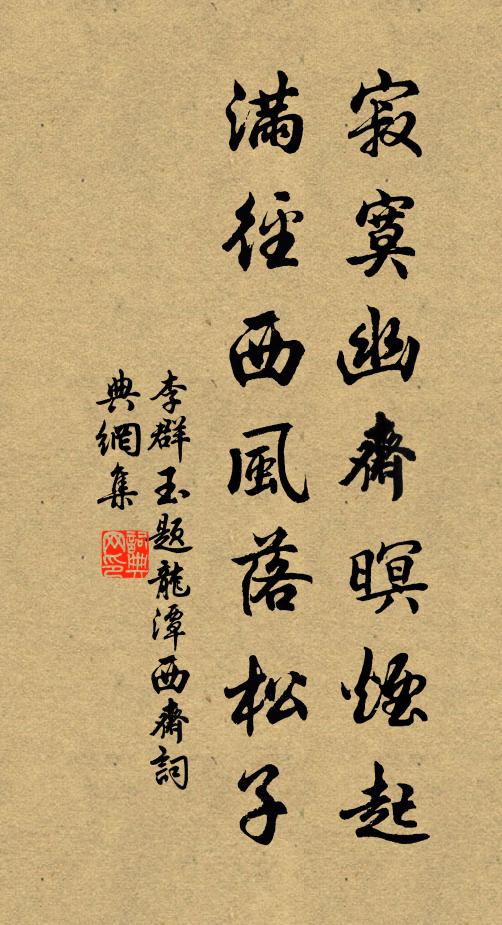 寂寞幽齋暝煙起
滿徑西風落松子
李群玉题龍潭西齋詞
典網集
詞典
网印